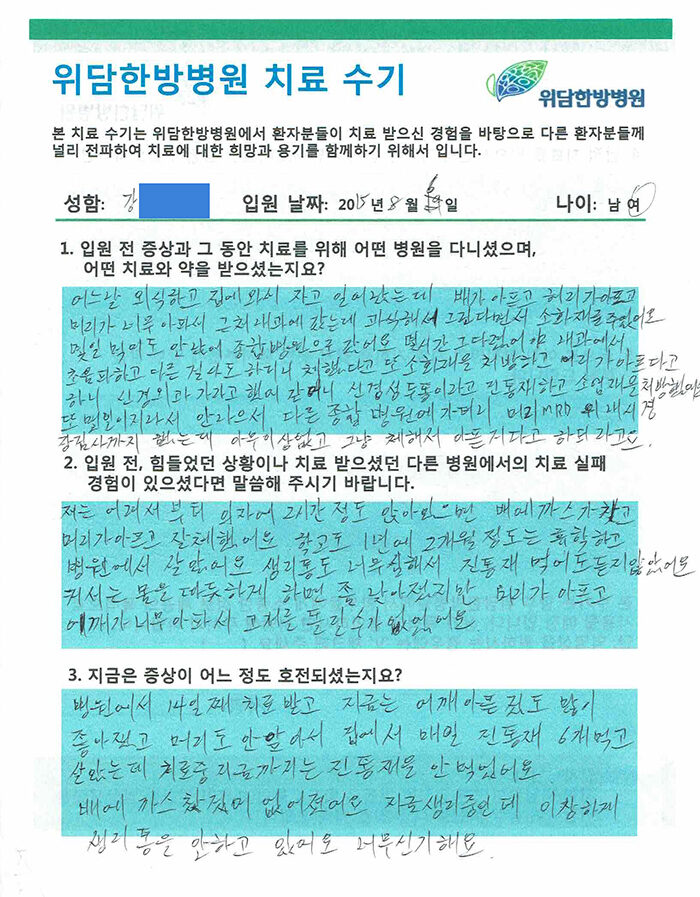 위담한방병원 치료 수기
위담한방병원
본 치료 수기는 위담한방병원에서 환자분들이 치료 받으신 경험을 바탕으로 다른 환자분들께
널리 전파하여 치료에 대한 희망과 용기를 함께하기 위해서 입니다.
성함: 강 입원 날짜: 2015년 8월 6일 나이: 남 여
1. 입원 전 증상과 그 동안 치료를 위해 어떤 병원을 다니셨으며,
어떤 치료와 약을 받으셨는지요?
어느날 외식하고 집에와서 자고 일어났는데 배가 아프고 허리가아프고
머리가 너무 아파서 근처내과에 갔는데 과식해서 그런다면서 소화재를주었어요
몇일 먹어도 안낳어 종합병원으로 갔어요 몇시간 내과에서
초음파하고 다른 하더니 체했다고 또 소화재을 처방하고 머리가아프다고
하니 신경외과 가라고 했어 갔더니 신경성두통이라고 진통재하고 소염재을처방
또몇일이지나서 안나으서 다른 종합 병원에가더니 머리MRI 위내시경
까지 했는데 아무이상없고 그냥 체해서 아픈거다고 하더라고요.
2. 입원 전, 힘들었던 상황이나 치료 받으셨던 다른 병원에서의 치료 실패
경험이 있으셨다면 말씀해 주시기 바랍니다.
저는 어려서 부터 의자에 2시간 정도 앉아있으면 배에까스가차고
머리가아프고 잘체했어요 학교도 1년에 2개월 정도는 휴학하고
병원에서 살았어요 생리통도 너무심해서 진통재 먹어도듣지않았어요
커서는 몸을따듯하게 하면 좀 낳아졌지만 머리가 아프고
어깨가너무아파서 고개를 돌릴수가없었어요
3. 지금은 증상이 어느 정도 호전되셨는지요?
병원에서 14일째 치료 받고 지금는 어깨아픈 것도 많이
좋아졌고 머리도 안앞아서 집에서 매일 진통재 6개먹고
살았는데 치료중지금까지는 진통재을 안먹었어요
배에 까스 없어졌어요 지금생리중인데 이상하게
생리통을 안하고 있어요 너무신기해요.